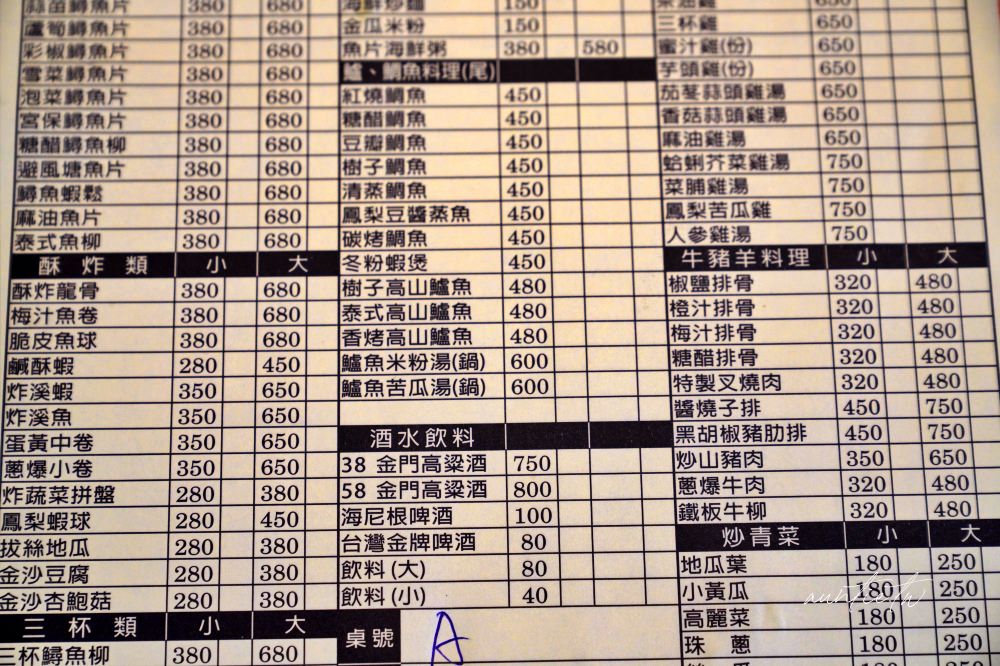 蒜苗鱒魚片 380 680
蘆筍鱒魚片 380 680
彩椒鱒魚片 380 680
雪菜鱒魚片 380 680
泡菜鱒魚片 380 680
宮保鱒魚片 380 680
糖醋鱒魚柳 380 680
避風塘魚片 380 680
鱒魚蝦鬆 380 680
麻油魚片 380 680
泰式魚柳 380 680
酥炸類 小 大
酥炸龍骨 380 680
梅汁魚卷 380 680
脆皮魚球 380 680
鹹酥蝦 280 450
炸溪蝦 350 650
炸溪魚 350 650
蛋黃中卷 350 650
蔥爆小卷 350 650
炸蔬菜拼盤 280 380
鳳梨蝦球 280 450
拔絲地瓜 280 380
金沙豆腐 280 380
金沙杏鮑菇 280 380
三杯類 小 大
三杯鱒魚柳 380 680
海鮮炒麵 150
金瓜米粉 150
魚片海鮮粥 380 580
鱸、鯛魚料理(尾)
紅燒鯛魚 450
糖醋鯛魚 450
豆瓣鯛魚 450
樹子鯛魚 450
清蒸鯛魚 450
鳳梨豆醬蒸魚 450
碳烤鯛魚 450
冬粉蝦煲 450
樹子高山鱸魚 480
泰式高山鱸魚 480
香烤高山鱸魚 480
鱸魚米粉湯(鍋) 600
鱸魚苦瓜湯(鍋) 600
酒水飲料
38 金門高粱酒 750
58 金門高粱酒 800
海尼根啤酒 100
台灣金牌啤酒 80
飲料(大) 80
飲料(小) 40
桌號 A
650
三杯雞 650
蜜汁雞(份) 650
芋頭雞(份) 650
茄苳蒜頭雞湯 650
香菇蒜頭雞湯 650
麻油雞湯 650
蛤蜊芥菜雞湯 750
菜脯雞湯 750
鳳梨苦瓜雞 750
人參雞湯 750
牛豬羊料理 小 大
椒鹽排骨 320 480
橙汁排骨 320 480
梅汁排骨 320 480
糖醋排骨 320 480
特製叉燒肉 320 480
醬燒子排 450 750
黑胡椒豬肋排 450 750
炒山豬肉 350 650
蔥爆牛肉 320 480
鐵板牛柳 320 480
炒青菜 小 大
地瓜葉 180 250
小黃瓜 180 250
高麗菜 180 250
珠蔥 180 250
180 250